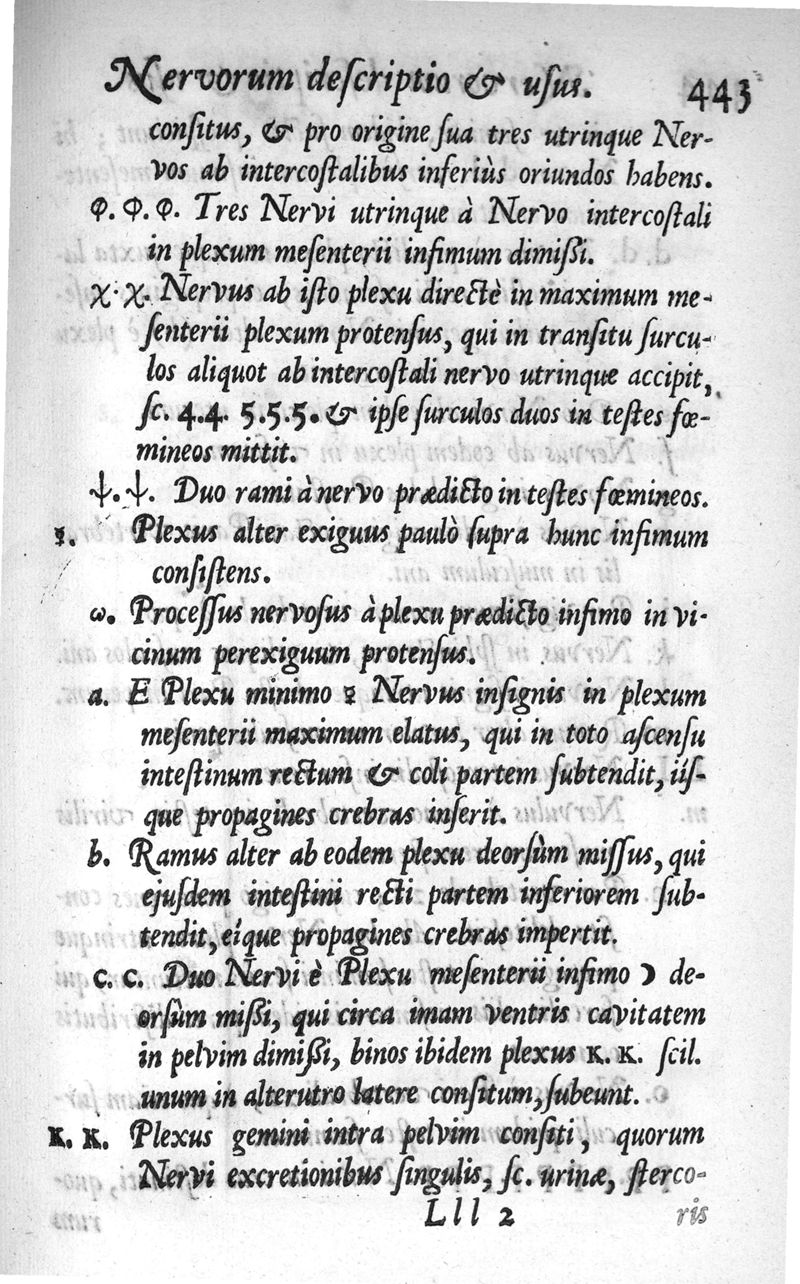 Nervorum deſcriptio & uſus. 443
conſitus, & pro origine ſua tres utrinque Ner-
vos ab intercoſtalibus inferiùs oriundos habens.
Φ. Φ. Φ. Tres Nervi utrinque à Nervo intercoſtali
in plexum meſenterii infimum dimiſſi.
χ. χ. Nervus ab iſto plexu directè in maximum me-
ſenterii plexum protenſus, qui in tranſitu ſurcu-
los aliquot ab intercoſtali nervo utrinque accipit,
ſc. 4.4. 5.5.5. & ipſe ſurculos duos in teſtes fœ-
mineos mittit.
ψ. ψ. Duo rami à nervo prædicto in teſtes fœmineos.
Plexus alter exiguus paulò ſupra hunc infimum
conſiſtens.
ω. Proceſſus nervoſus à plexu prædicto infimo in vi-
cinum perexiguum protenſus.
a. E Plexu minimo Nervus inſignis in plexum
meſenterii maximum elatus, qui in toto aſcenſu
inteſtinum rectum & coli partem ſubtendit, iiſ-
que propagines crebras inſerit.
b. Ramus alter ab eodem plexu deorſùm miſſus, qui
ejuſdem inteſtini recti partem inferiorem ſub-
tendit, eíque propagines crebras impertit.
c. c. Duo Nervi è Plexu meſenterii infimo ☽ de-
orſùm miſſi, qui circa imam ventris cavitatem
in pelvim dimiſſi, binos ibidem plexus K. K. ſcil.
unum in alterutro latere conſitum, ſubeunt.
K. K. Plexus gemini intra pelvim conſiti, quorum
Nervi excretionibus ſingulis, ſc. urinæ, ſterco-
Lll 2 ris